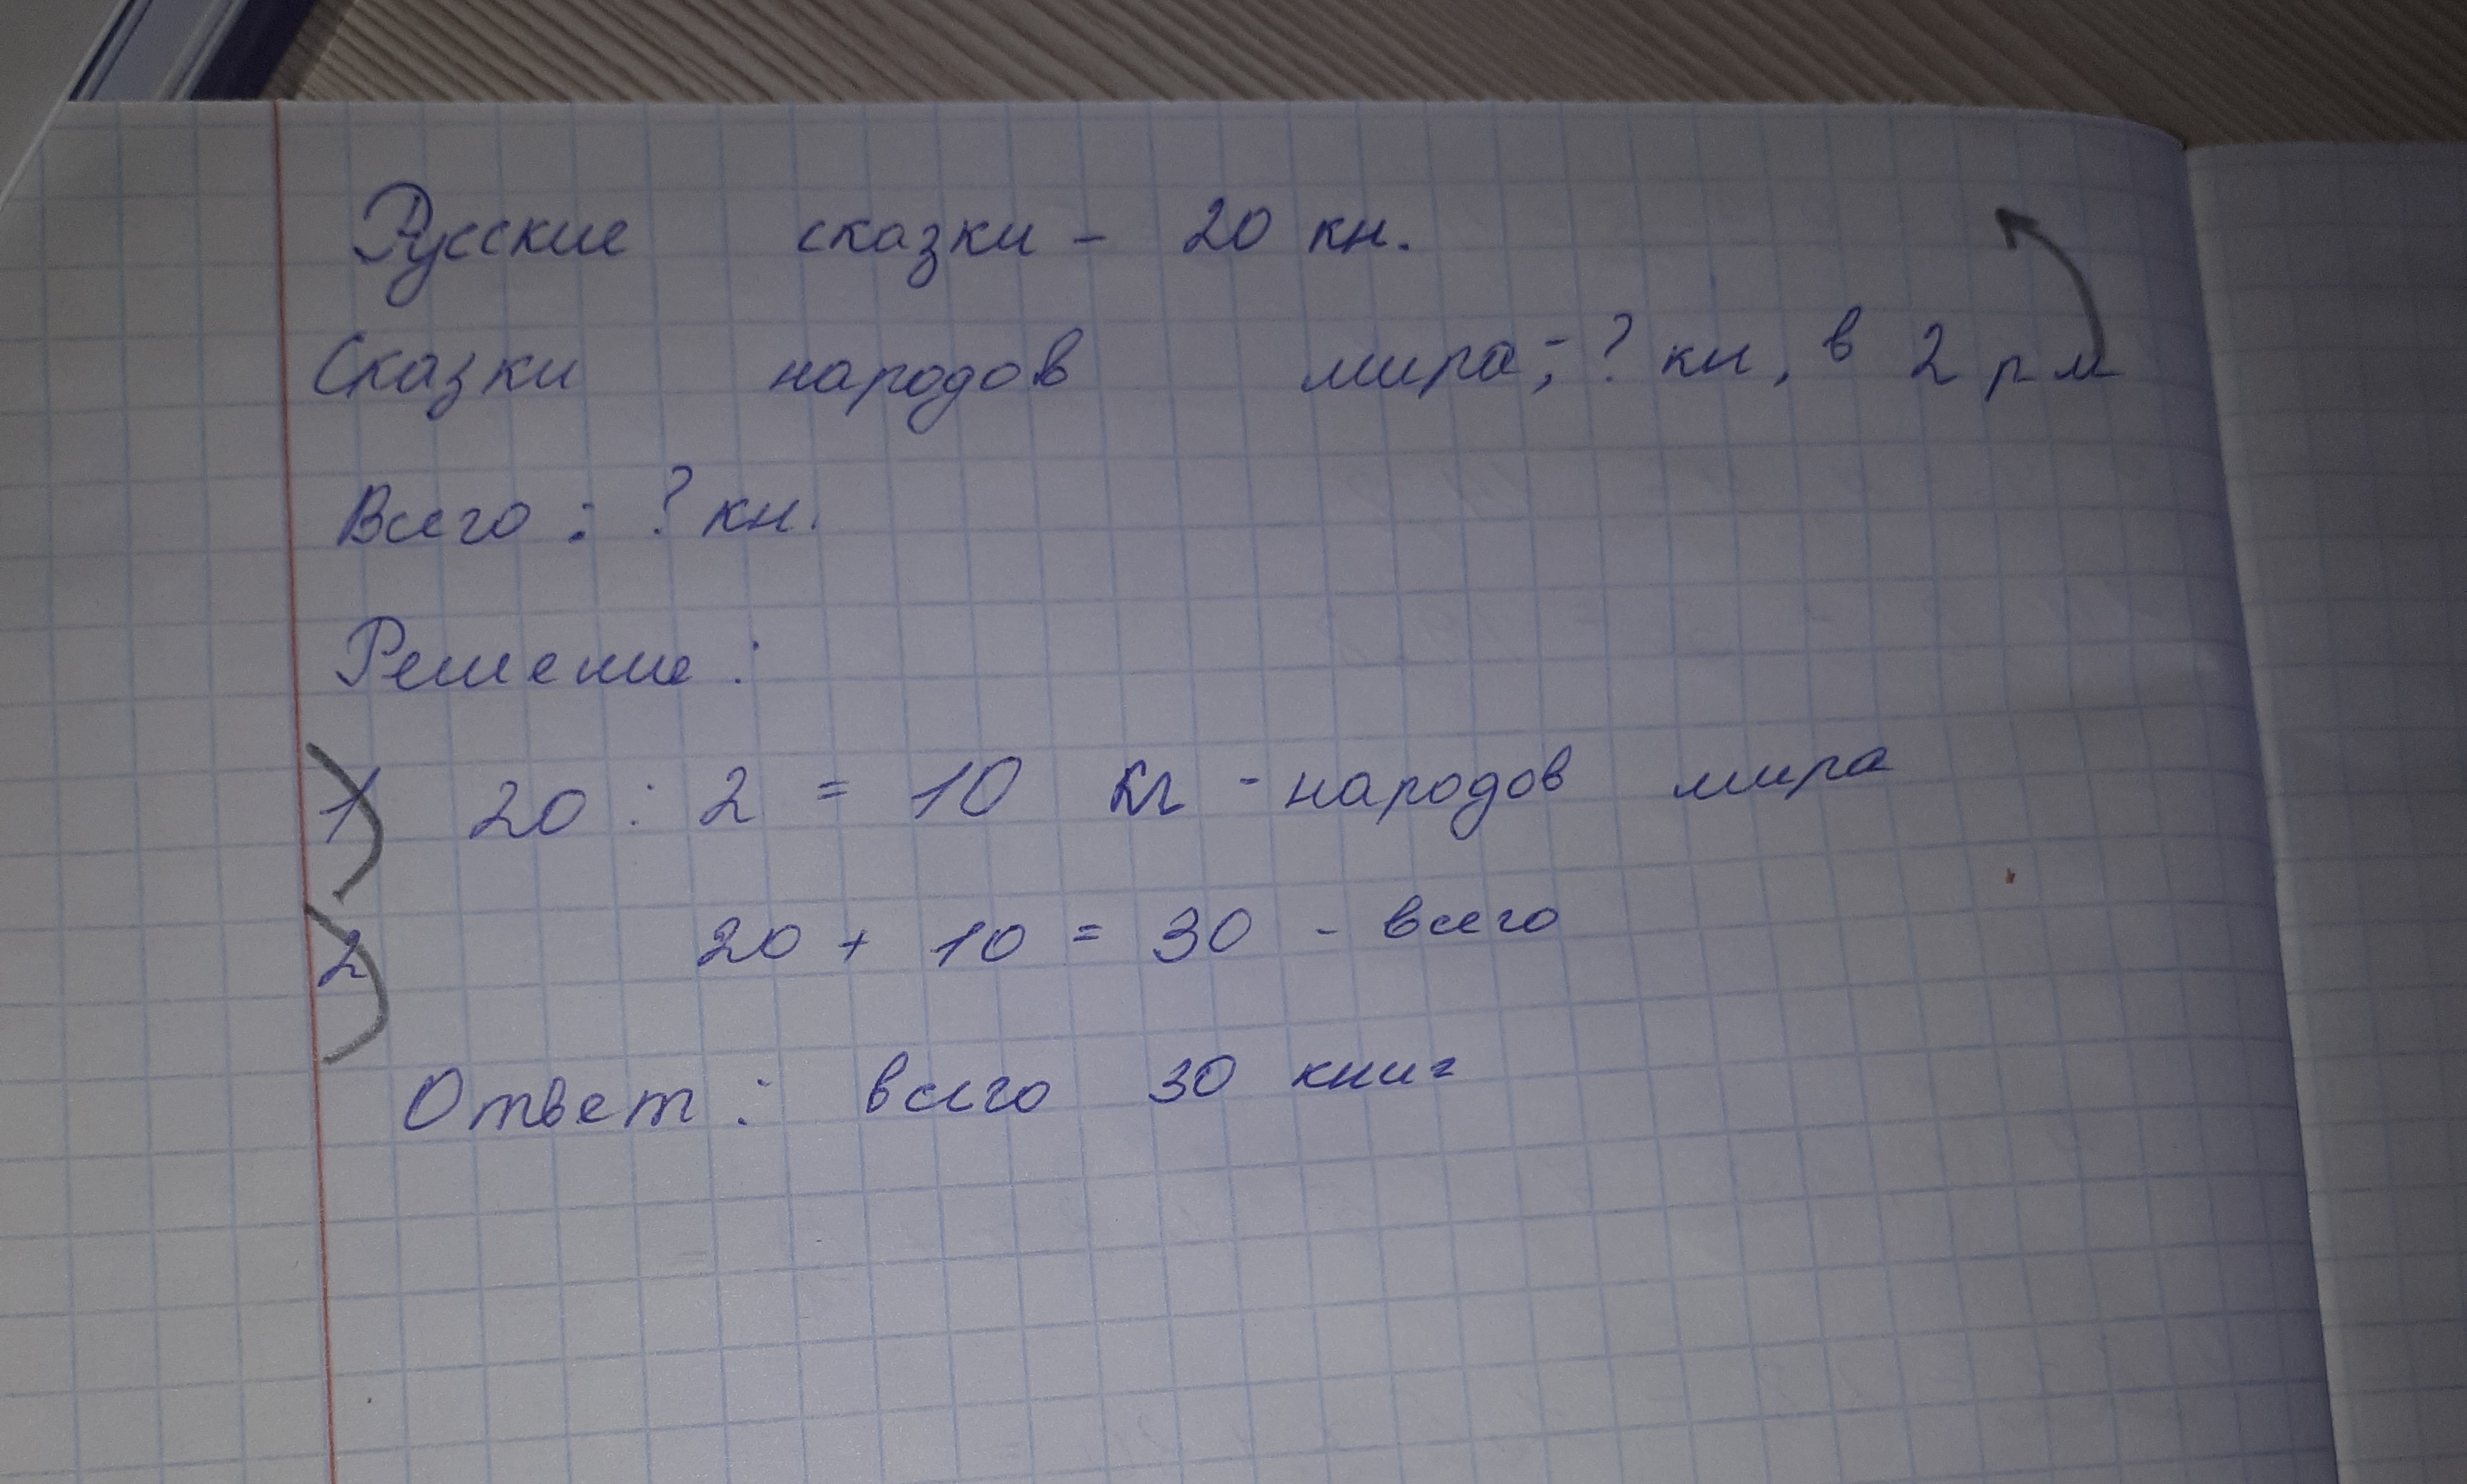 Русские сказки - 20 кн.
Сказки народов мира; - ? кн, в 2 р м
Всего : ? кн.
Решение :
1) 20 : 2 = 10 кг - народов мира
2) 20 + 10 = 30 - всего
Ответ : всего 30 книг